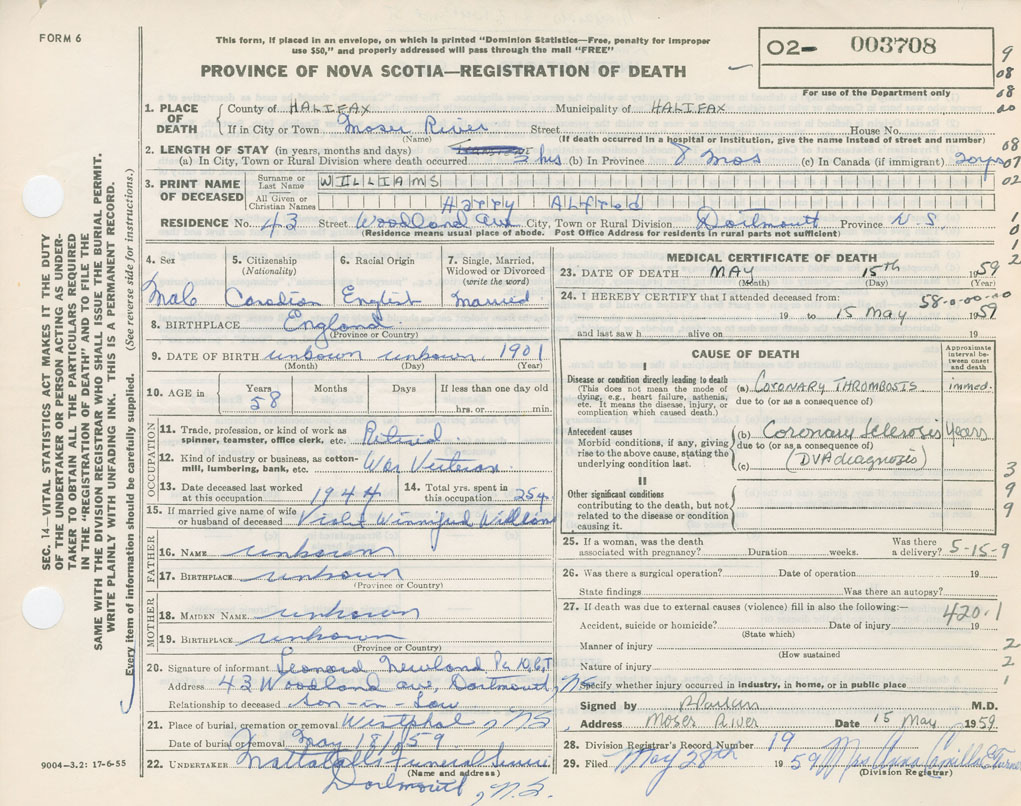 FORM 6
This form, if placed in an envelope, on which is printed "Dominion Statistics—Free, penalty for improper
use $50," and properly addressed will pass through the mail "FREE"
PROVINCE OF NOVA SCOTIA—REGISTRATION OF DEATH
02- 003708
For use of the Department only
9
08
08
00
08
07
02
1
0
1
2
SEC. 14—VITAL STATISTICS ACT MAKES IT THE DUTY
OF THE UNDERTAKER OR PERSON ACTING AS UNDER-
TAKER TO OBTAIN ALL THE PARTICULARS REQUIRED
IN THE "REGISTRATION OF DEATH" AND TO FILE THE
SAME WITH THE DIVISION REGISTRAR WHO SHALL ISSUE THE BURIAL PERMIT.
WRITE PLAINLY WITH UNFADING INK. THIS IS A PERMANENT RECORD.
Every item of information should be carefully supplied. (See reverse side for instructions.)
1. PLACE OF DEATH County of HALIFAX Municipality of HALIFAX
If in City or Town Moser River Street House No.
(Name) (If death occurred in a hospital or institution, give the name instead of street and number)
2. LENGTH OF STAY (in years, months and days)
(a) In City, Town or Rural Division where death occurred 3 hrs (b) In Province 8 mos (c) In Canada (if immigrant) 20 yrs
3. PRINT NAME OF DECEASED Surname or Last Name WILLIAMS
All Given or Christian Names Harry Alfred
RESIDENCE No. 43 Street Woodland Ave City, Town or Rural Division Dartmouth Province N S.
(Residence means usual place of abode. Post Office Address for residents in rural parts not sufficient)
4. Sex Male
5. Citizenship (Nationality) Canadian
6. Racial Origin English
7. Single, Married, Widowed or Divorced (write the word) Married
8. BIRTHPLACE England
(Province or Country)
9. DATE OF BIRTH unkown unkown 1901
(Month) (Day) (Year)
10. AGE in Years 58 Months Days If less than one day old
hrs. or min.
OCCUPATION
11. Trade, profession, or kind of work as spinner, teamster, office clerk, etc. Retired
12. Kind of industry or business, as cotton-mill, lumbering, bank, etc. War Veteran
13. Date deceased last worked at this occupation 1944
14. Total yrs. spent in this occupation 25 yr
15. If married give name of wife or husband of deceased Violet Winnifred Williams
FATHER
16. NAME unkown
17. BIRTHPLACE unkown
(Province or Country)
MOTHER
18. MAIDEN NAME unkown
19. BIRTHPLACE unkown
(Province or Country)
20. Signature of informant Leonard Newland
Address 43 Woodland ave, Dartmouth, NS
Relationship to deceased Son-in-law
21. Place of burial, cremation or removal Westphal, N.S.
Date of burial or removal May 18/59
22. UNDERTAKER Funeral Service
(Name and address)
Dartmouth, N.S.
9004-3.2: 17-6-55
MEDICAL CERTIFICATE OF DEATH
23. DATE OF DEATH MAY 15th 1959
(Month) (Day) (Year)
24. I HEREBY CERTIFY that I attended deceased from: 58-0-00-00
19 to 15 May 1959
and last saw h alive on 19
CAUSE OF DEATH
Approximate interval between onset and death
I
Disease or condition directly leading to death (a) CORONARY THROMBOSIS immed.
(This does not mean the mode of dying, e.g., heart failure, asthenia, etc. It means the disease, injury, or complication which caused death.)
due to (or as a consequence of)
Antecedent causes (b) Coronary Sclerosis Years
Morbid conditions, if any, giving rise to the above cause, stating the underlying condition last.
due to (or as a consequence of)
(c) (DVA diagnosis)
II
Other significant conditions contributing to the death, but not related to the disease or condition causing it.
3
9
9
25. If a woman, was the death associated with pregnancy? Duration weeks. Was there a delivery? 5-15-9
26. Was there a surgical operation? Date of operation 19
State findings Was there an autopsy?
27. If death was due to external causes (violence) fill in also the following:— 420.1
Accident, suicide or homicide? Date of injury 19
(State which)
Manner of injury 2
(How sustained
Nature of injury 2
1
Specify whether injury occurred in industry, in home, or in public place
Signed by M.D.
Address Moser River Date 15 May 1959
28. Division Registrar's Record Number 19
29. Filed May 28th 1959 Mrs Anna Camilla E Turner
(Division Registrar)